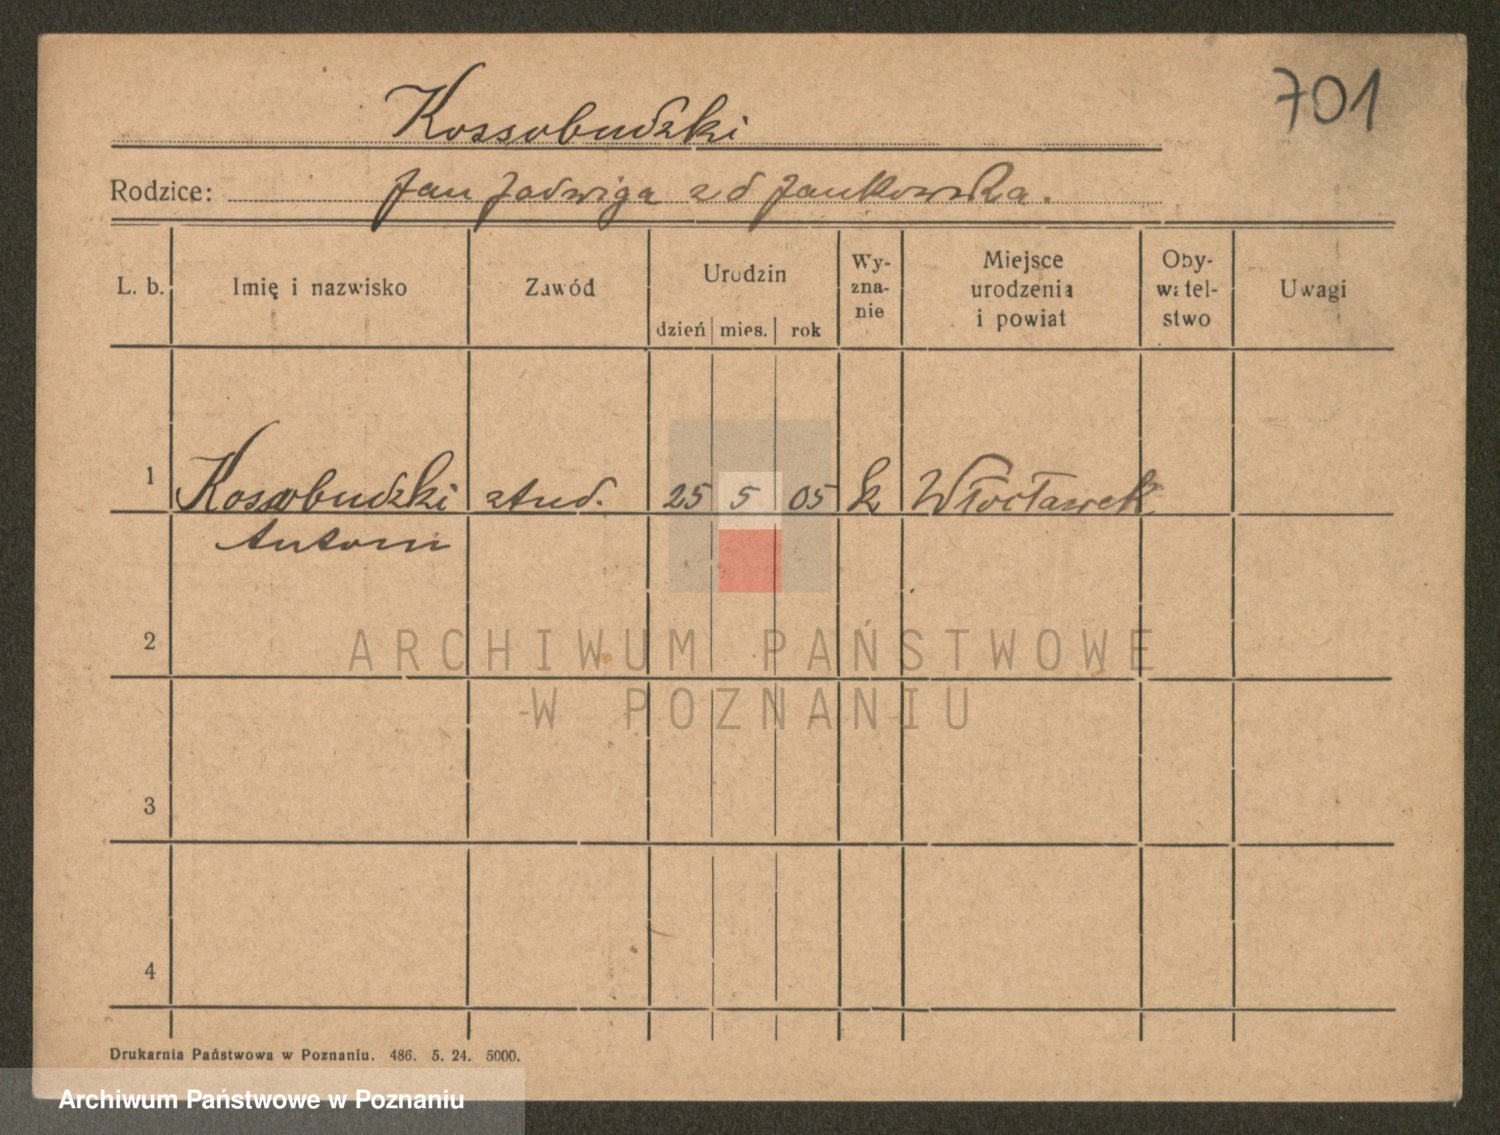 701
Kossobudzki
Rodzice: Jan Jadwiga z d Jankowska.
L. b. Imię i nazwisko Zawód Urodzin Wy-
zna-
nie Miejsce
urodzenia
i powiat Oby-
watel-
stwo Uwagi
dzień mies. rok
1 Kossobudzki stud. 25 5 05 k Włocławek
Antoni
2
ARCHIWUM PAŃSTWOWE
W POZNANIU
3
4
Drukarnia Państwowa w Poznaniu. 486. 5. 24. 5000.
Archiwum Państwowe w Poznaniu